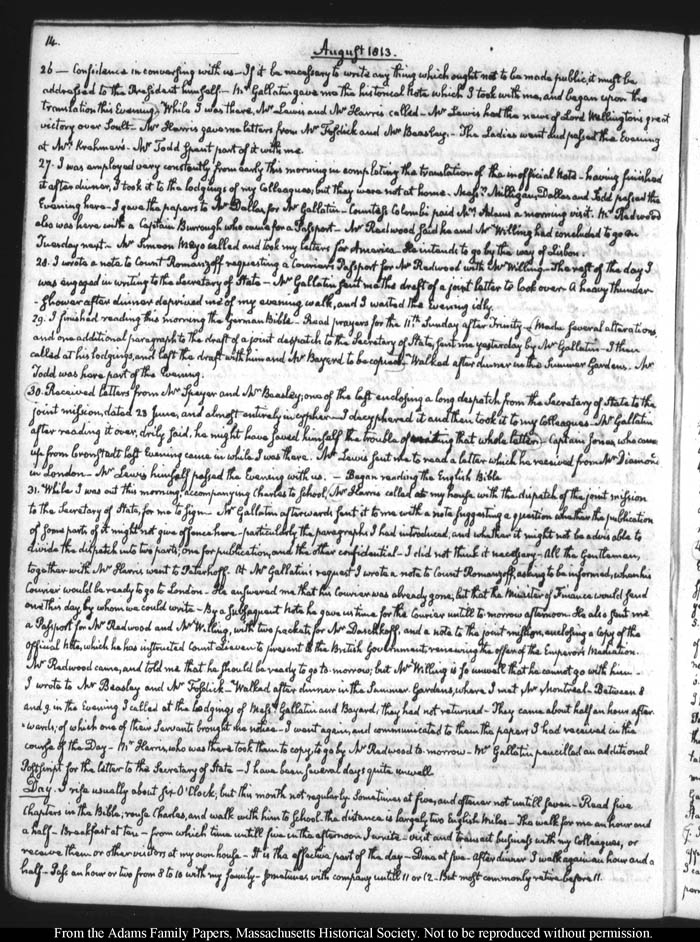 14.
August 1813.
26 — Confidence in conversing with us — If it be necessary to write any thing which ought not to be made public, it must be
addressed to the President himself — Mr Gallatin gave me the historical Note which I took with me, and began upon the
translation this Evening. While I was there, Mr Lewis and Mr Harris called — Mr Lewis had the news of Lord Wellington's great
victory over Soult — Mr Harris gave me letters from Mr Fosdick and Mr Beasley. — The Ladies went and passed the Evening
at Mrs Krehmer's. Mr Todd spent part of it with me.
27. I was employed very constantly from early this morning in completing the translation of the unofficial Note — having finished
it after dinner, I took it to the lodgings of my Colleagues, but they were not at home. Messrs Milligan, Dallas and Todd passed the
Evening here — I gave the papers to Mr Dallas for Mr Gallatin — Countess Colombi paid Mrs Adams a morning visit. Mr Redwood
also was here with a Captain Burrough who came for a Passport — Mr Redwood said he and Mr Willing had concluded to go on
Tuesday next — Mr Simeon Mayo called and took my letters for America — He intends to go by the way of Lisbon.
28. I wrote a note to Count Romanzoff requesting a Courier's Passport for Mr Redwood with Mr Willing — The rest of the day I
was engaged in writing to the Secretary of State — Mr Gallatin sent me the draft of a joint letter to look over — A heavy thunder-
shower after dinner deprived me of my evening walk, and I wasted the Evening idly.
29. I finished reading this morning the German Bible — Read prayers for the 11th Sunday after Trinity — Made several alterations,
and one additional paragraph to the draft of a joint despatch to the Secretary of State, sent me yesterday by Mr Gallatin — I then
called at his lodgings, and left the draft with him and Mr Bayard to be copied — Walked after dinner in the Summer Gardens. Mr
Todd was here part of the Evening.
30. Received letters from Mr Speyer and Mr Beasley; one of the last enclosing a long despatch from the Secretary of State to the
joint mission, dated 23 June, and almost entirely in cypher — I decyphered it and then took it to my Colleagues — Mr Gallatin
after reading it over, drily said, he might have saved himself the trouble of writing that whole letter. — Captain Jones, who came
up from Cronstadt last Evening came in while I was there. Mr Lewis sent me to read a letter which he received from Mr Diamond
in London — Mr Lewis himself passed the Evening with us. — Began reading the English Bible
31. While I was out this morning, accompanying Charles to School, Mr Harris called at my house with the dispatch of the joint mission
to the Secretary of State, for me to sign — Mr Gallatin afterwards sent it to me with a note suggesting a question whether the publication
of some parts of it might not give offence here — particularly the paragraphs I had introduced, and whether it might not be advisable to
divide the dispatch into two parts, one for publication, and the other confidential — I did not think it necessary — All the Gentlemen,
together with Mr Harris went to Peterhoff. At Mr Gallatin's request I wrote a note to Count Romanzoff, asking to be informed, when his
Courier would be ready to go to London — He answered me that his Courier was already gone; but that the Minister of Finance would send
one this day by whom we could write — By a subsequent Note he gave us time for the Courier untill to morrow afternoon. He also sent me
a Passport for Mr Redwood and Mr Willing, with two packets for Mr Daschkoff, and a note to the joint mission, enclosing a copy of the
Official Note, which he has instructed Count Lieven to present to the British Government, renewing the offer of the Emperor's Mediation.
Mr Redwood came, and told me that he should be ready to go to-morrow; but Mr Willing is so unwell that he cannot go with him —
I wrote to Mr Beasley and Mr Fosdick — Walked after dinner in the Summer Gardens, where I met Mr Montreal — Between 8
and 9 in the evening I called at the lodgings of Messrs Gallatin and Bayard; they had not returned — They came about half an hour after-
wards; of which one of their servants brought me notice — I went again, and communicated to them the papers I had received in the
course of the Day — Mr Harris, who was there took them to copy, to go by Mr Redwood to-morrow — Mr Gallatin pencilled an additional
Postscript for the letter to the Secretary of State — I have been several days quite unwell
Day. I rise usually about six O'Clock, but this month not regularly. Sometimes at five, and oftener not untill seven — Read five
chapters in the Bible; rouse Charles, and walk with him to School. the distance is largely two English Miles — The walk for me an hour and
a half — Breakfast at ten — from which time untill five in the afternoon I write — visit and transact business with my Colleagues, or
receive them or other visitors at my own house — It is the effective part of the day — Dine at five. After dinner I walk again an hour and a
half — Pass an hour or two from 8 to 10 with my family — sometimes with company untill 11 or 12 — But most commonly retire before 11.
From the Adams Family Papers, Massachusetts Historical Society. Not to be reproduced without permission.